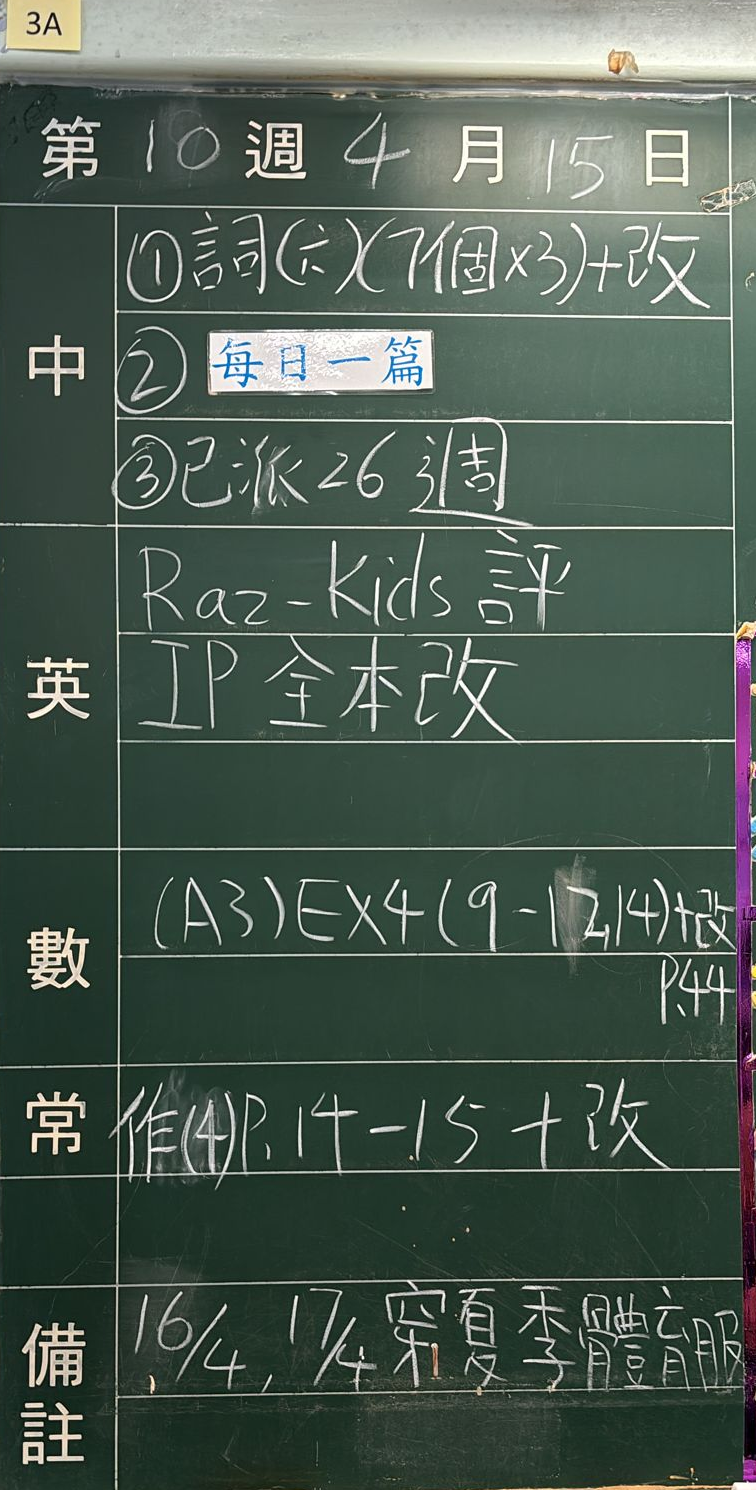 3A
第 10 週 4 月 15 日
中
①詞(六)(7個×3)+改
② 每日一篇
③已派26週
英
Raz-Kids 評
IP 全本改
數
(A3)EX4(9-12,14)+改
P.44
常
作(4)P.14-15+改
備註
16/4, 17/4 穿夏季體育服